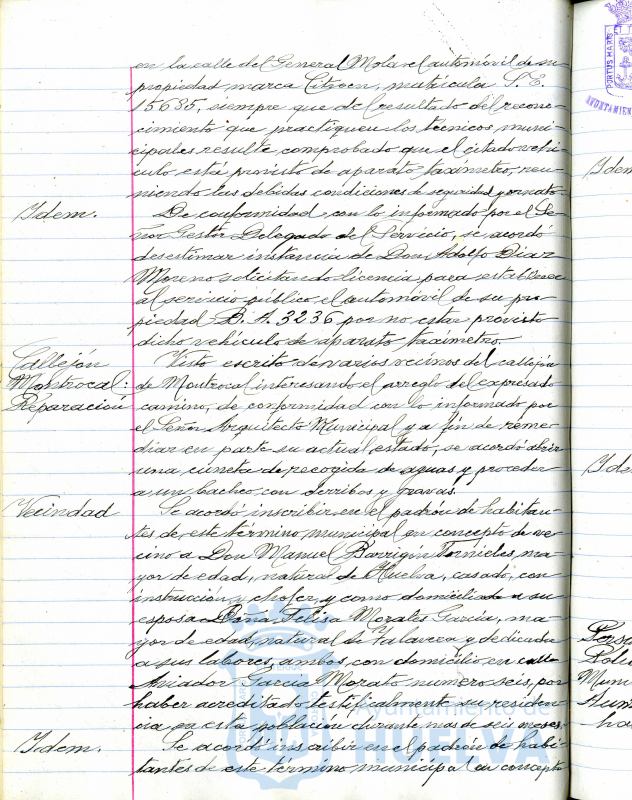 en la calle del General Mola el automóvil de su
propiedad marca Citroen, matrícula S.E.
15685, siempre que del resultado del recono-
cimiento que practiquen los técnicos muni-
cipales resulte comprobado que el citado vehí-
culo está provisto de aparato taxímetro, reu-
niendo las debidas condiciones de seguridad y ornato.
Idem.
De conformidad con lo informado por el Se-
ñor Gestor Delegado del Servicio, se acordó
desestimar instancia de Don Adolfo Diaz
Moreno solicitando licencia para establecer
al servicio público el automóvil de su pro-
piedad B.A. 3236 por no estar provisto
dicho vehiculo de aparato taxímetro.
Callejón
Montrocal:
Reparación
Visto escrito de varios vecinos del callejón
de Montrocal interesando el arreglo del expresado
camino, de conformidad con lo informado por
el Señor Arquitecto Municipal y a fin de reme-
diar en parte su actual estado, se acordó abrir
una cuneta de recogida de aguas y proceder
a un bacheo con derribos y gravas.
Vecindad
Se acordó inscribir en el padrón de habitan-
tes de este término municipal en concepto de ve-
cino a Don Manuel Barrigón Tornieles, ma-
yor de edad, natural de Huelva, casado, con
instrucción y chofer, y como domiciliada a su
esposa Doña Felisa Morales García, ma-
yor de edad, natural de Talavera y dedicada
a sus labores, ambos con domicilio en calle
Aviador García Morato numero seis, por
haber acreditado testificalmente su residen-
cia en esta población durante mas de seis meses.
Idem.
Se acordó inscribir en el padrón de habi-
tantes de este término municipal en concepto
Ayuntamiento de
HUELVA
PORTUS MARIS
AYUNTAMIEN
Idem
Ide